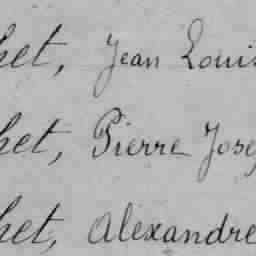 het, Jean Louis
het, Pierre Jose
het, Alexandre